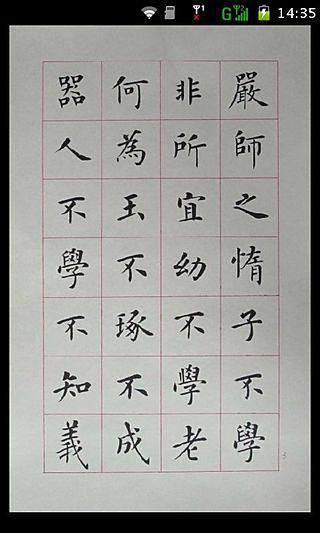 14:35
嚴師之惰子不學
非所宜幼不學老
何為玉不琢不成
器人不學不知義